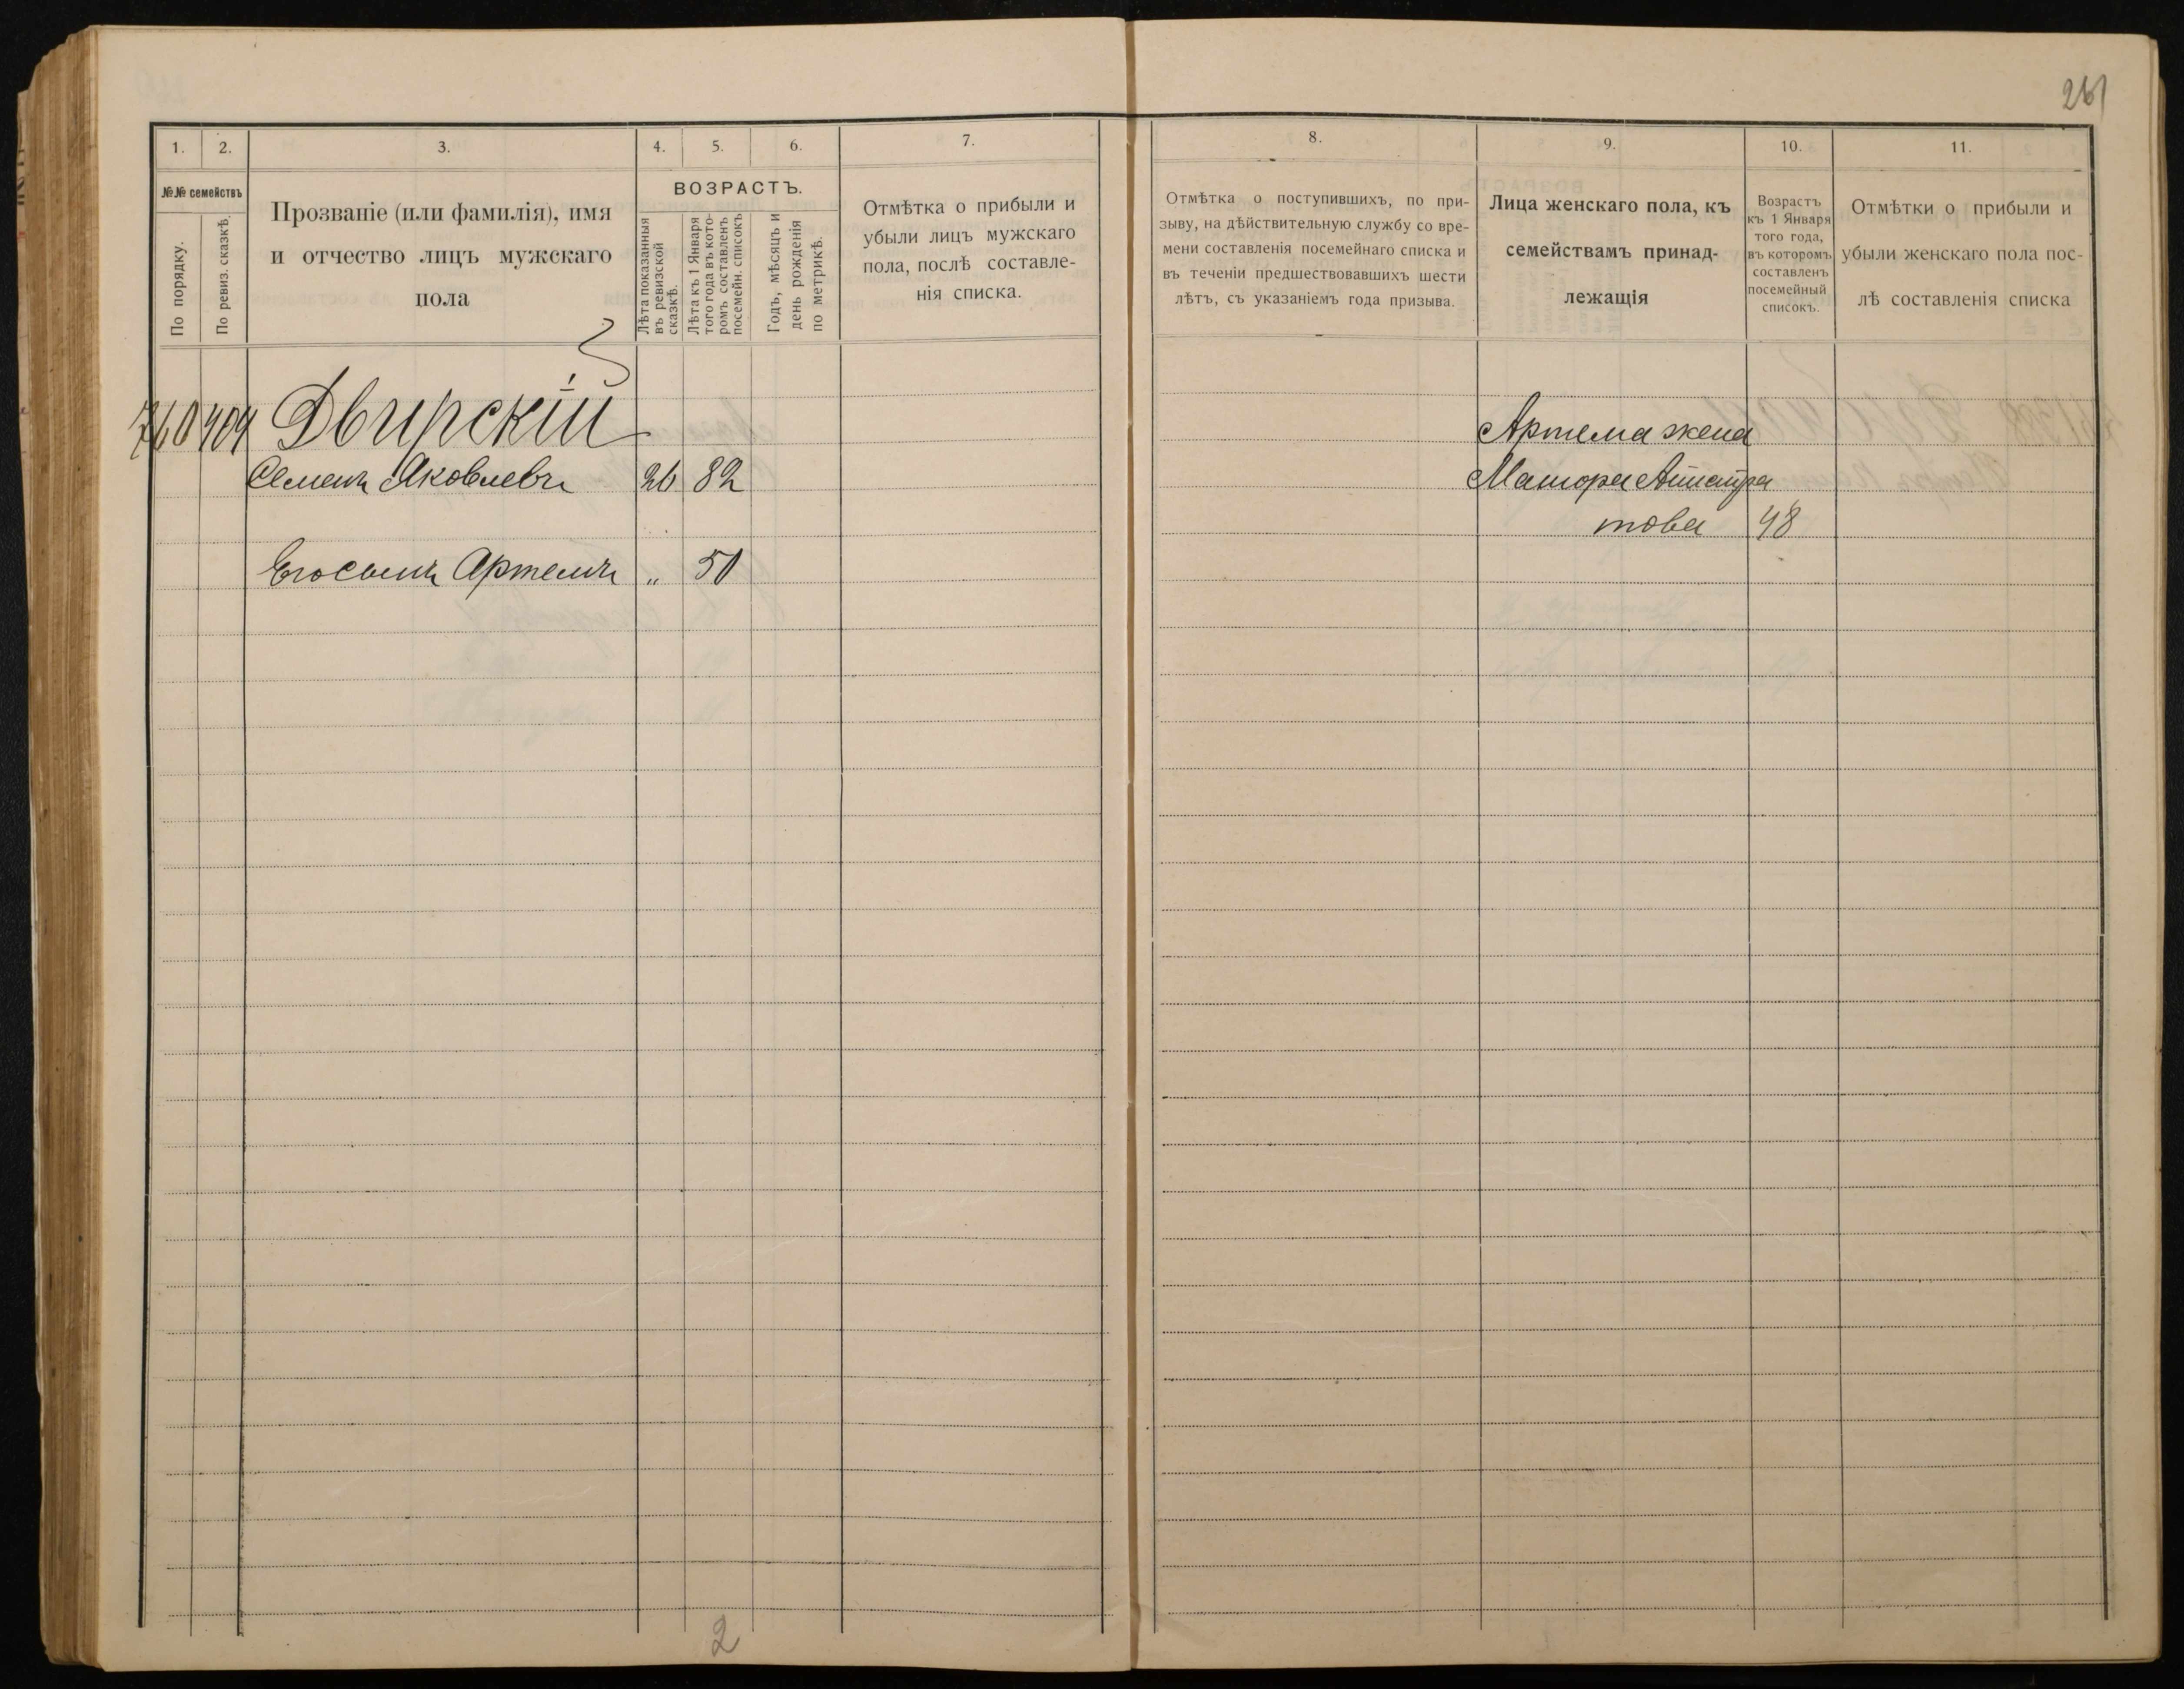 261
1. 2. 3. 4. 5. 6. 7.
№№ семействъ
По порядку.
По ревиз. сказкѣ.
Прозваніе (или фамилія), имя
и отчество лицъ мужскаго
пола
ВОЗРАСТЪ.
Лѣта показанныя
въ ревизской
сказкѣ.
Лѣта къ 1 Января
того года въ кото-
ромъ составленъ
посемейн. списокъ
Годъ, мѣсяцъ и
день рожденія
по метрикѣ.
Отмѣтка о прибыли и
убыли лицъ мужскаго
пола, послѣ составле-
нія списка.
760 404 Двирскій
Семенъ Яковлевъ 26 82
Его сынъ Артемъ „ 50
2
8. 9. 10. 11.
Отмѣтка о поступившихъ, по при-
зыву, на дѣйствительную службу со вре-
мени составленія посемейнаго списка и
въ теченіи предшествовавшихъ шести
лѣтъ, съ указаніемъ года призыва.
Лица женскаго пола, къ
семействамъ принад-
лежащія
Возрастъ
къ 1 Января
того года,
въ которомъ
составленъ
посемейный
списокъ.
Отмѣтки о прибыли и
убыли женскаго пола пос-
лѣ составленія списка
Артема жена
това 48